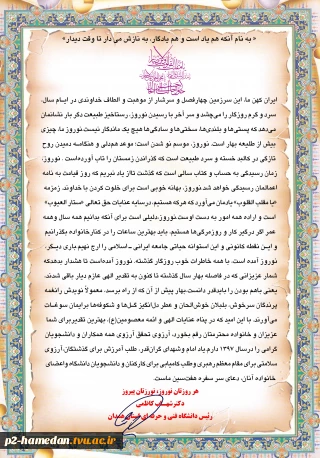 « به نام آنکه هم یاد است و هم یادگار، به نازش می‌دار تا وقت دیدار»
ایران کهن ما، این سرزمین چهارفصل و سرشار از موهبت و الطاف خداوندی در ایام سال،
سرد و گرم روزگار را می‌چشد و سر آخر با رسیدن نوروز، رستاخیز طبیعت دگر بار نشانمان
می‌دهد که پستی‌ها و بلندی‌ها، سختی‌ها و سادگی‌ها هیچ یک ماندگار نیست. نوروز ما، چیزی
بیش از طلیعه بهار است. نوروز، موسم نو شدن است؛ موعد هم‌دلی و هنگامه دمیدن روح
تازگی در کالبد خسته و سرد طبیعت است که گذراندن زمستان را تاب آورده‌است. نوروز،
زمان رسیدگی به حساب و کتاب سالی است که گذشت تا از یاد نبریم که روز قیامت به نامه
اعمالمان رسیدگی خواهد شد. نوروز، بهانه خوبی است برای خلوت کردن با خداوند. زمزمه
«یا مقلب القلوب» یادمان می‌آورد که هر که هستیم، درسایه عنایات حق تعالی «ستار العیوب»
است و اراده همه امور به دست اوست. نوروز، دلیلی است برای آنکه بدانیم همه سال و همه
عمر اگر درگیر کار و روزمرگی‌ها هستیم، باید بهترین ساعات را در کنار خانواده بگذرانیم
و این نقطه کانونی و این استوانه حیاتی جامعه ایرانی ـ اسلامی را ارج نهیم. باری دیگر،
نوروز آمده است، با همه خاطرات خوب روزگار گذشته. نوروز آمده‌است تا هشدار بدهد که
شمار عزیزانی که در فاصله بهار سال گذشته تا کنون به تقدیر الهی عازم دیار باقی شدند،
یعنی باهم بودن را باید قدر دانست. بهار پیش از آن که از راه برسد، معمولاً نویدش را نغمه
پرندگان سرخوش، بلبلان خوش‌الحان و عطر دل‌انگیز گل‌ها و شکوفه‌ها برایمان سوغات
می‌آورند. با این امید که در پناه عنایات الهی و ائمه معصومین(ع)، بهترین تقدیر برای شما
عزیزان و خانواده محترمتان رقم بخورد، آرزوی تحقق آرزوی همه همکاران و دانشجویان
گرامی را درسال ۱۳۹۷ دارم. یاد امام و شهدای گران‌قدر، طلب آمرزش برای گذشتگان، آرزوی
سلامتی برای مقام معظم رهبری و طلب کامیابی برای کارکنان و دانشجویان دانشگاه و اعضای
خانواده آنان، دعای سر سفره هفت‌سین ماست.
هر روزتان نوروز، نوروزتان پیروز
دکتر شهاب کاظمی
رئیس دانشگاه فنی و حرفه ای استان همدان
p2-hamedan.tvu.ac.ir